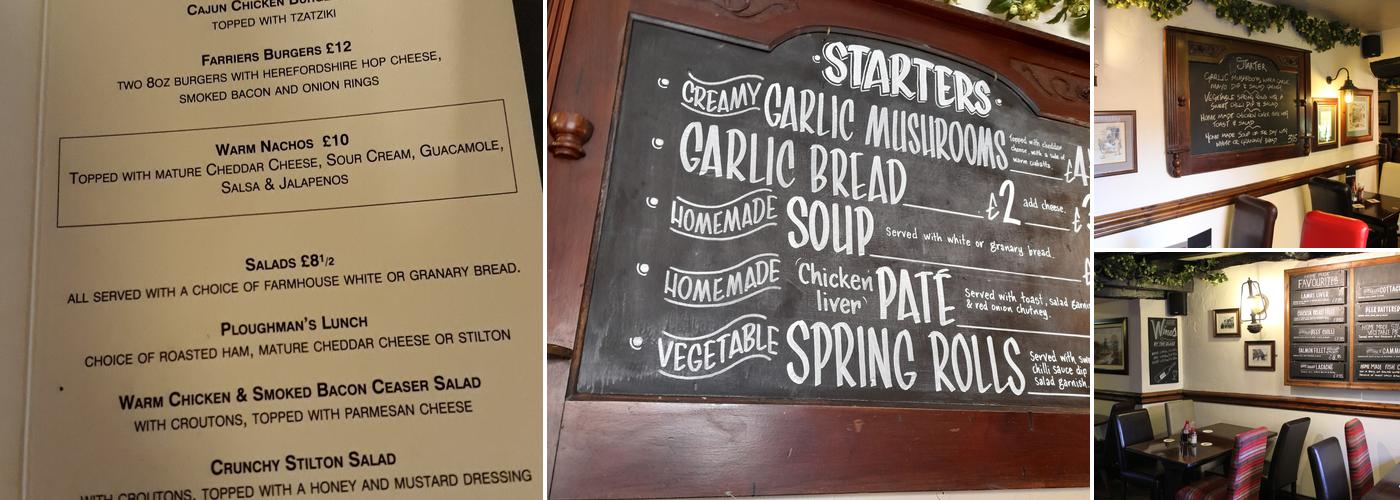 CAJUN CHICKEN
TOPPED WITH TZATZIKI
FARRIERS BURGERS £12
TWO 8OZ BURGERS WITH HEREFORDSHIRE HOP CHEESE,
SMOKED BACON AND ONION RINGS
WARM NACHOS £10
TOPPED WITH MATURE CHEDDAR CHEESE, SOUR CREAM, GUACAMOLE,
SALSA & JALAPENOS
SALADS £8 1/2
ALL SERVED WITH A CHOICE OF FARMHOUSE WHITE OR GRANARY BREAD.
PLOUGHMAN'S LUNCH
CHOICE OF ROASTED HAM, MATURE CHEDDAR CHEESE OR STILTON
WARM CHICKEN & SMOKED BACON CEASER SALAD
WITH CROUTONS, TOPPED WITH PARMESAN CHEESE
CRUNCHY STILTON SALAD
WITH CROUTONS, TOPPED WITH A HONEY AND MUSTARD DRESSING
STARTERS
CREAMY GARLIC MUSHROOMS topped with cheddar
cheese, with a side of
warm ciabatta.
GARLIC BREAD £2 add cheese.
HOMEMADE SOUP Served with white or granary bread.
HOMEMADE 'Chicken liver' PATÉ Served with toast, salad
& red onion chutney.
VEGETABLE SPRING ROLLS Served with
chilli sauce dip
Salad garnish.
STARTER
GARLIC MUSHROOM, WARM
MAYO DIP & SALAD
VEGETABLE SPRING ROLLS WITH A
SWEET CHILLI DIP & SALAD
HOME MADE CHICKEN LIVER
TOAST & SALAD
HOME MADE SOUP OF THE DAY WITH
WHITE OR GRANARY BREAD
Wines
FAVOURITES
LAMBS LIVER
BEEF CHILLI
SALMON FILLET
LASAGNE
HOME MADE FISH